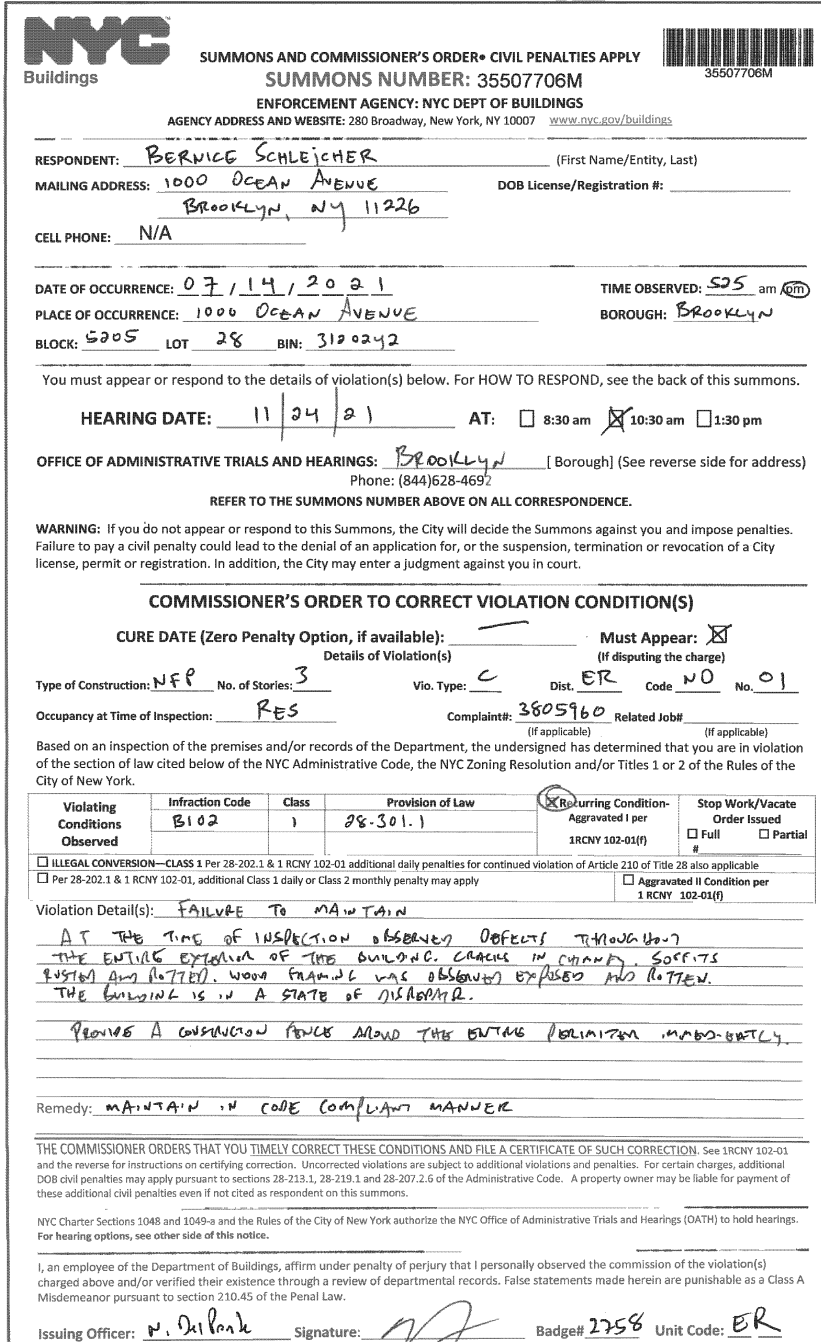 NYC
Buildings
SUMMONS AND COMMISSIONER'S ORDER• CIVIL PENALTIES APPLY
SUMMONS NUMBER: 35507706M
35507706M
ENFORCEMENT AGENCY: NYC DEPT OF BUILDINGS
AGENCY ADDRESS AND WEBSITE: 280 Broadway, New York, NY 10007 www.nyc.gov/buildings
RESPONDENT: BERNICE SCHLEICHER (First Name/Entity, Last)
MAILING ADDRESS: 1000 OCEAN AVENUE DOB License/Registration #:
BROOKLYN, NY 11226
CELL PHONE: N/A
DATE OF OCCURRENCE: 07/14/2021 TIME OBSERVED: 525 am /pm
PLACE OF OCCURRENCE: 1000 OCEAN AVENUE BOROUGH: BROOKLYN
BLOCK: 5205 LOT 28 BIN: 3120242
You must appear or respond to the details of violation(s) below. For HOW TO RESPOND, see the back of this summons.
HEARING DATE: 11 | 24 | 21 AT: ☐ 8:30 am ☒ 10:30 am ☐ 1:30 pm
OFFICE OF ADMINISTRATIVE TRIALS AND HEARINGS: BROOKLYN [ Borough] (See reverse side for address)
Phone: (844)628-4692
REFER TO THE SUMMONS NUMBER ABOVE ON ALL CORRESPONDENCE.
WARNING: If you do not appear or respond to this Summons, the City will decide the Summons against you and impose penalties.
Failure to pay a civil penalty could lead to the denial of an application for, or the suspension, termination or revocation of a City
license, permit or registration. In addition, the City may enter a judgment against you in court.
COMMISSIONER'S ORDER TO CORRECT VIOLATION CONDITION(S)
CURE DATE (Zero Penalty Option, if available): — Must Appear: ☒
Details of Violation(s) (If disputing the charge)
Type of Construction: NFP No. of Stories: 3 Vio. Type: C Dist. ER Code NO No. 01
Occupancy at Time of Inspection: RES Complaint#: 3805960 Related Job#
(If applicable) (If applicable)
Based on an inspection of the premises and/or records of the Department, the undersigned has determined that you are in violation
of the section of law cited below of the NYC Administrative Code, the NYC Zoning Resolution and/or Titles 1 or 2 of the Rules of the
City of New York.
Violating Conditions Observed
Infraction Code
B102
Class
1
Provision of Law
28-301.1
☒ Recurring Condition-
Aggravated I per
1RCNY 102-01(f)
Stop Work/Vacate
Order Issued
☐ Full ☐ Partial
#
☐ ILLEGAL CONVERSION—CLASS 1 Per 28-202.1 & 1 RCNY 102-01 additional daily penalties for continued violation of Article 210 of Title 28 also applicable
☐ Per 28-202.1 & 1 RCNY 102-01, additional Class 1 daily or Class 2 monthly penalty may apply
☐ Aggravated II Condition per
1 RCNY 102-01(f)
Violation Detail(s): FAILURE TO MAINTAIN
AT THE TIME OF INSPECTION OBSERVED DEFECTS THROUGHOUT
THE ENTIRE EXTERIOR OF THE BUILDING. CRACKS IN CHIMNEY. SOFFITS
RUSTED AND ROTTED. WOOD FRAMING WAS OBSERVED EXPOSED AND ROTTEN.
THE BUILDING IS IN A STATE OF DISREPAIR.
PROVIDE A CONSTRUCTION FENCE AROUD THE ENTIRE PERIMITER IMMED-EATLY.
Remedy: MAINTAIN IN CODE COMPLIANT MANNER
THE COMMISSIONER ORDERS THAT YOU TIMELY CORRECT THESE CONDITIONS AND FILE A CERTIFICATE OF SUCH CORRECTION. See 1RCNY 102-01
and the reverse for instructions on certifying correction. Uncorrected violations are subject to additional violations and penalties. For certain charges, additional
DOB civil penalties may apply pursuant to sections 28-213.1, 28-219.1 and 28-207.2.6 of the Administrative Code. A property owner may be liable for payment of
these additional civil penalties even if not cited as respondent on this summons.
NYC Charter Sections 1048 and 1049-a and the Rules of the City of New York authorize the NYC Office of Administrative Trials and Hearings (OATH) to hold hearings.
For hearing options, see other side of this notice.
I, an employee of the Department of Buildings, affirm under penalty of perjury that I personally observed the commission of the violation(s)
charged above and/or verified their existence through a review of departmental records. False statements made herein are punishable as a Class A
Misdemeanor pursuant to section 210.45 of the Penal Law.
Issuing Officer: N. Signature: Badge# 2758 Unit Code: ER